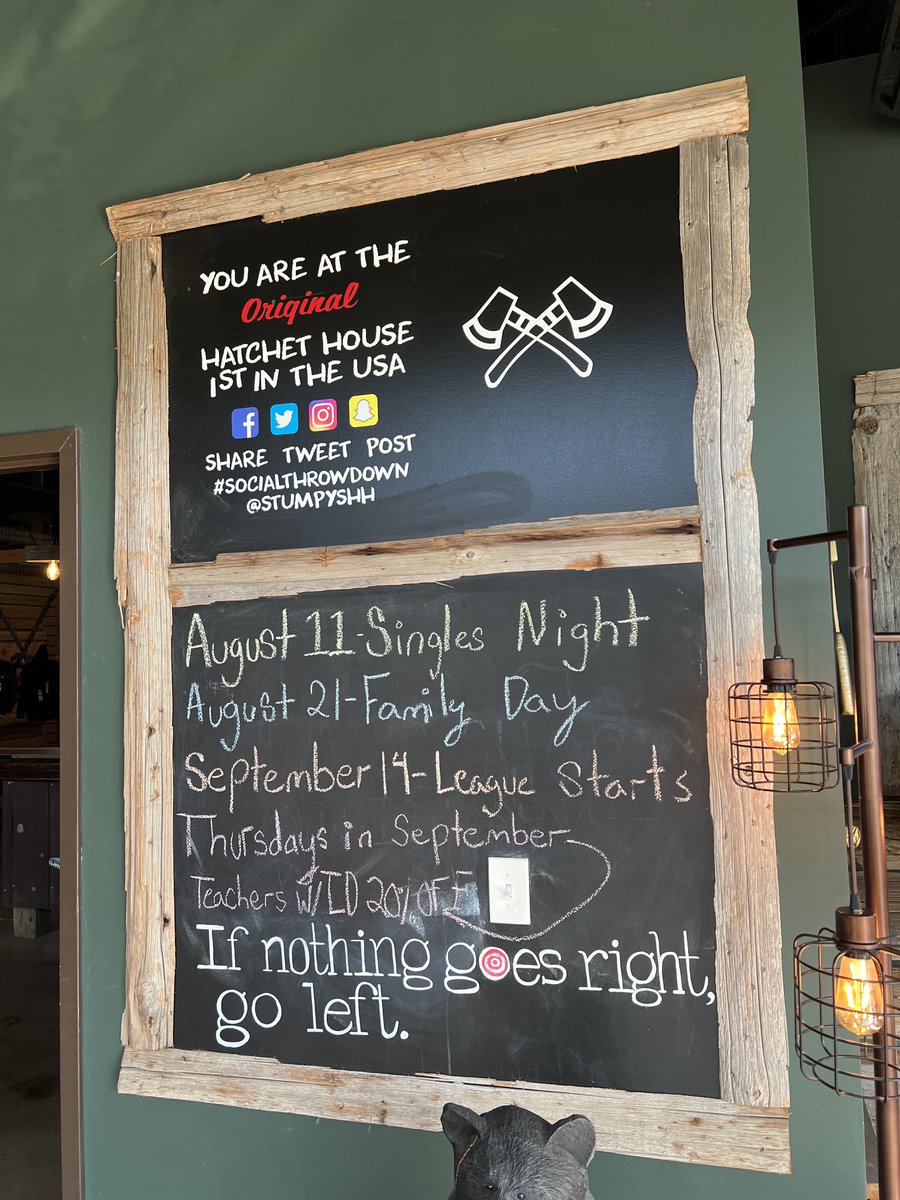 YOU ARE AT THE
Original
HATCHET HOUSE
1ST IN THE USA
SHARE TWEET POST
#SOCIALTHROWDOWN
@STUMPYSHH
August 11-Singles Night
August 21-Family Day
September 14-League Starts
Thursdays in September-
Teachers W/ID 20% OFF
If nothing goes right,
go left.